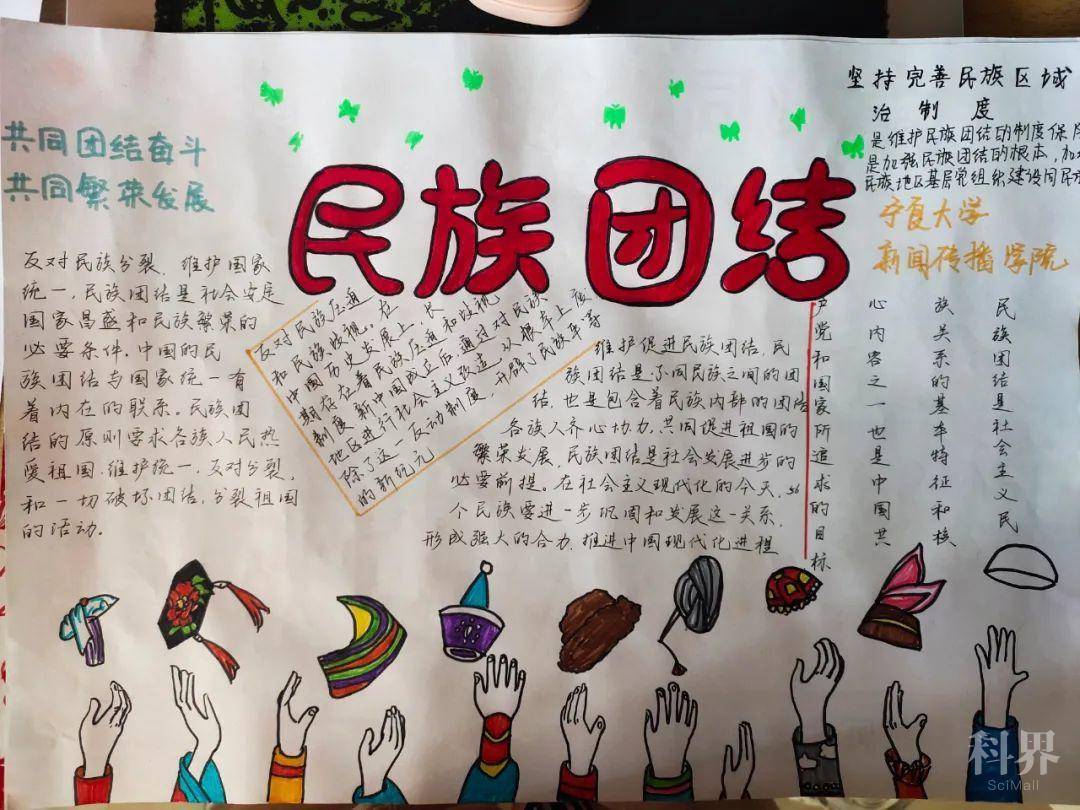 共同团结奋斗
共同繁荣发展
民族团结
坚持完善民族区域
治制度
是维护民族团结的制度保
是加强民族团结的根本,加
民族地区基层党组织建设同民
宁夏大学
新闻传播学院
反对民族分裂,维护国家
统一,民族团结是社会安定
国家昌盛和民族繁荣的
必要条件.中国的民
族团结与国家统一有
着内在的联系。民族团
结的原则要求各族人民热
爱祖国.维护统一,反对分裂,
和一切破坏团结,分裂祖国
的活动.
反对民族压迫
和民族歧视。在
中国历史发展上,长
期存在着民族压迫和歧视
制度,新中国成立后通过对民族
地区进行社会主义改造,从根本上废
除了这一反动制度,开辟了民族平等
的新纪元
维护促进民族团结,民
族团结是不同民族之间的团
结,也是包含着民族内部的团结
各族人齐心协力,共同促进祖国的
繁荣发展,民族团结是社会发展进步的
必要前提。在社会主义现代化的今天,56
个民族要进一步巩固和发展这一关系,
形成强大的合力,推进中国现代化进程
民族团结是社会主义民
族关系的基本特征和核
心内容之一也是中国共
产党和国家所追求的目标
科界
SciMall